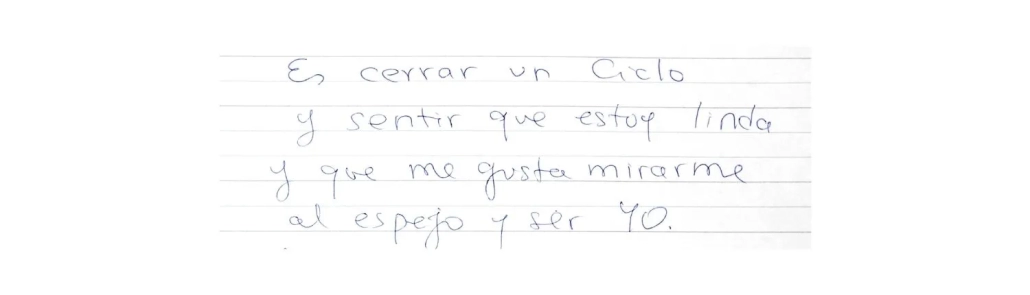 Es cerrar un Ciclo
y sentir que estoy linda
y que me gusta mirarme
al espejo y ser YO.